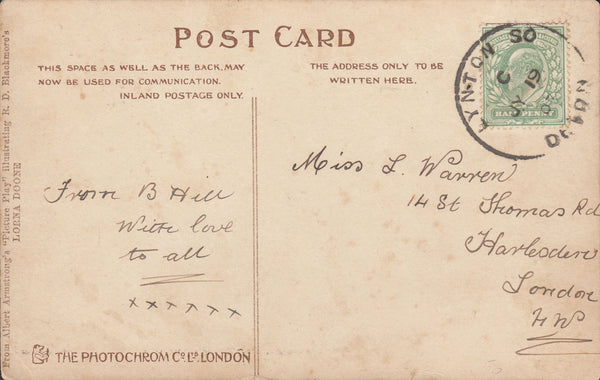 POST CARD
THIS SPACE AS WELL AS THE BACK, MAY
NOW BE USED FOR COMMUNICATION.
INLAND POSTAGE ONLY.
THE ADDRESS ONLY TO BE
WRITTEN HERE.
LYNTON SO
C
19
DEVON
HALFPENNY
From Albert Armstrong's "Picture Play" illustrating R. D. Blackmore's
LORNA DOONE
From B Hill
With love
to all
xxxxxx
Miss L. Warren
14 St Thomas Rd
Harlesden
London
NW
THE PHOTOCHROM Co Ld. LONDON